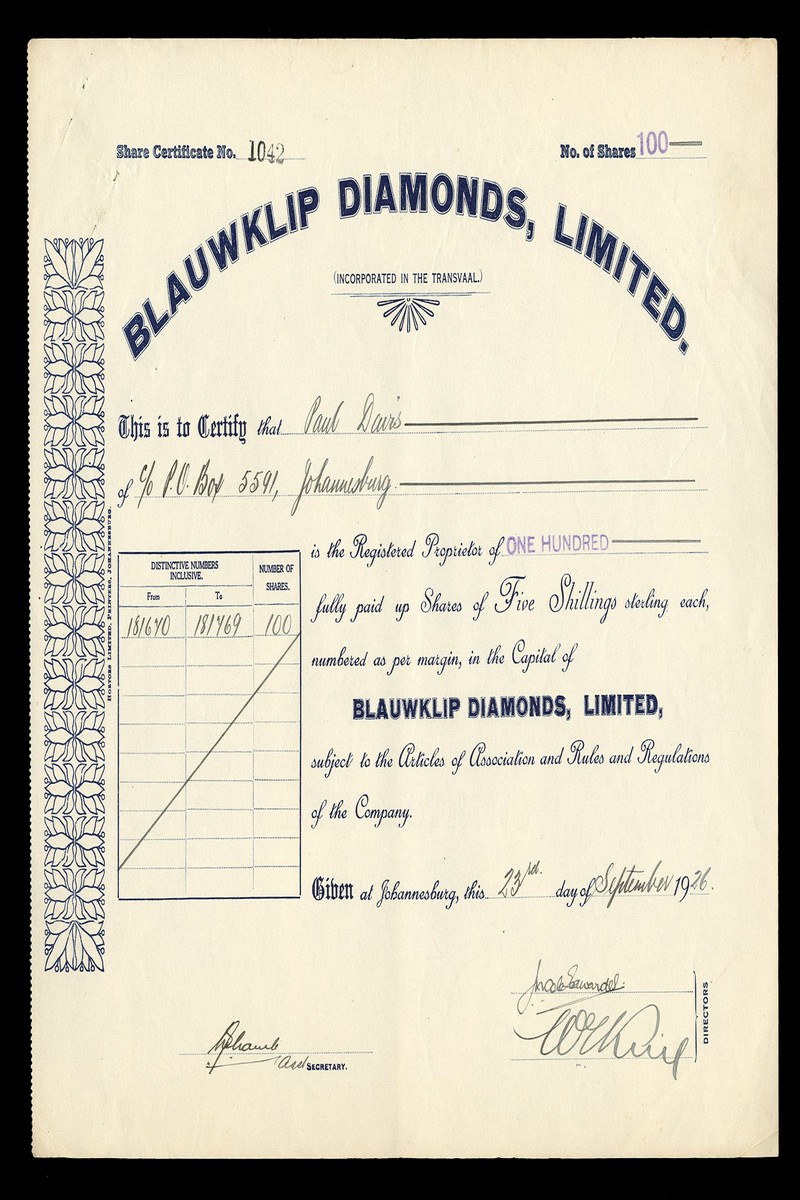 Share Certificate No. 1042
No. of Shares 100
BLAUWKLIP DIAMONDS, LIMITED.
(INCORPORATED IN THE TRANSVAAL.)
This is to Certify that Paul Davis
of c/o P.O. Box 5591, Johannesburg.
is the Registered Proprietor of ONE HUNDRED
fully paid up Shares of Five Shillings sterling each,
numbered as per margin, in the Capital of
BLAUWKLIP DIAMONDS, LIMITED,
subject to the Articles of Association and Rules and Regulations
of the Company.
DISTINCTIVE NUMBERS INCLUSIVE.
NUMBER OF SHARES.
From To
181670 181769 100
HORTORS LIMITED, PRINTERS, JOHANNESBURG.
Given at Johannesburg, this 23rd. day of September 1926.
DIRECTORS
Asst SECRETARY.